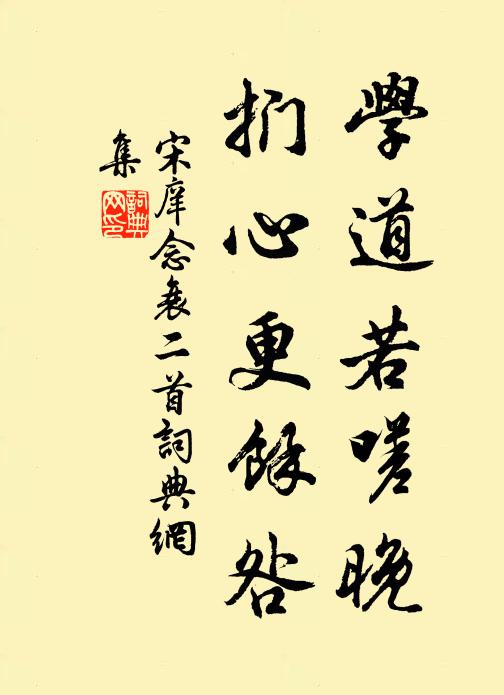 學道若嗟晚
捫心更餘咎
宋庠念衰二首詞典網
集
詞典網印